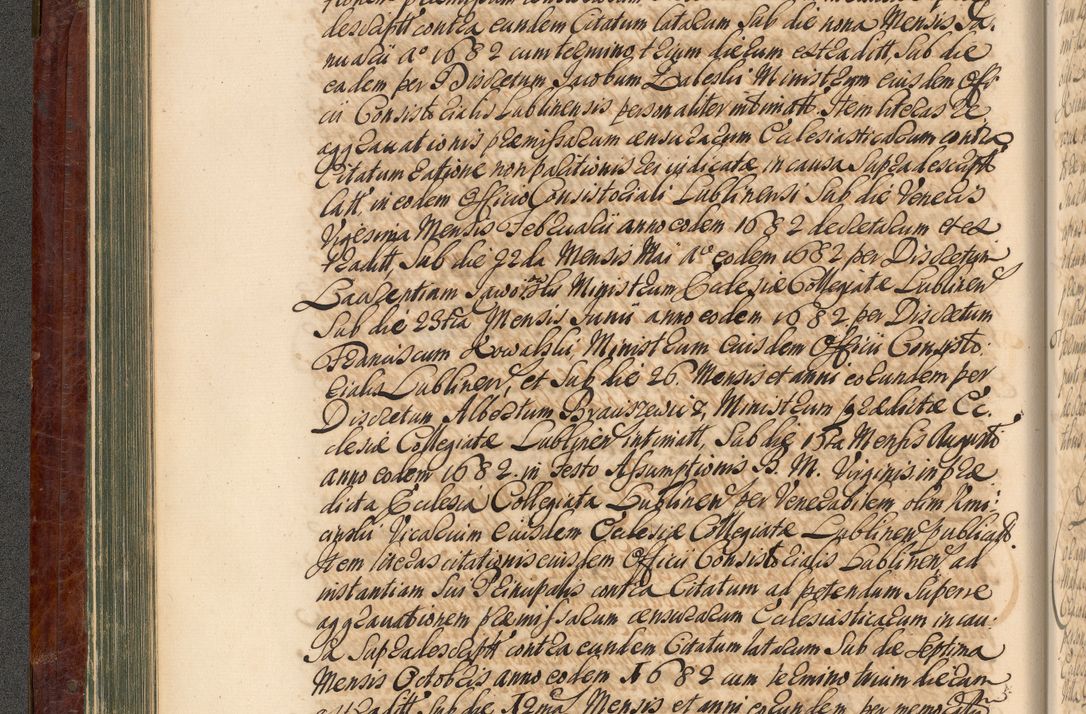 descript contra eundem Citatum latarum Sub die nona Mensis Ja-
nuarii Ao 1682 cum termino trium dierum extradit, Sub die
eadem per Discretum Jacobum Zaleski Ministrum eiusdem Offi-
cii Consistorialis Lublinensis personaliter intimatt. Item literas Re
aggravationis præmissarum censurarum Ecclesiasticarum contra
Citatum ratione non paritionis rei iudicatæ in causa Supradescript
latt, in eodem Officio Consistoriali Lublinensi Sub die Veneris
Vigesima Mensis Februarii anno eodem 1682 decretarum et ex
traditt, Sub die 22da Mensis Maii Ao eodem 1682 per Discretum
Laurentium Jaworski Ministrum Ecclesiæ Collegiatæ Lublinen
Sub die 23tia Mensis Junii anno eodem 1682 per Discretum
Franciscum Kowalski, Ministrum eiusdem Officii Consisto-
rialis Lublinen, et Sub die 26. Mensis et anni eorundem per
Discretum Albertum Brauszewicz, Ministrum prædictæ Ec-
clesiæ Collegiatæ Lublinen intimatt, Sub die 15ta Mensis Augusti
anno eodem 1682 in Festo Assumptionis B. M. Virginis in præ
dicta Ecclesia Collegiata Lublinen per Venerabilem olim
Vicarium eiusdem Ecclesiæ Collegiatæ Lublinen publicatt.
Item literas citationis eiusdem Officii Consistorialis Lublinen ad
instantiam Sui Principalis contra Citatum ad petendum Superre
aggravationem præmissarum censurarum Ecclesiasticarum in cau-
sa Supradescriptt contra eundem Citatum latarum Sub die Septima
Mensis Octobris anno eodem 1682 cum termino trium dierum
extraditt Sub die 12ma Mensis et anni eorundem per